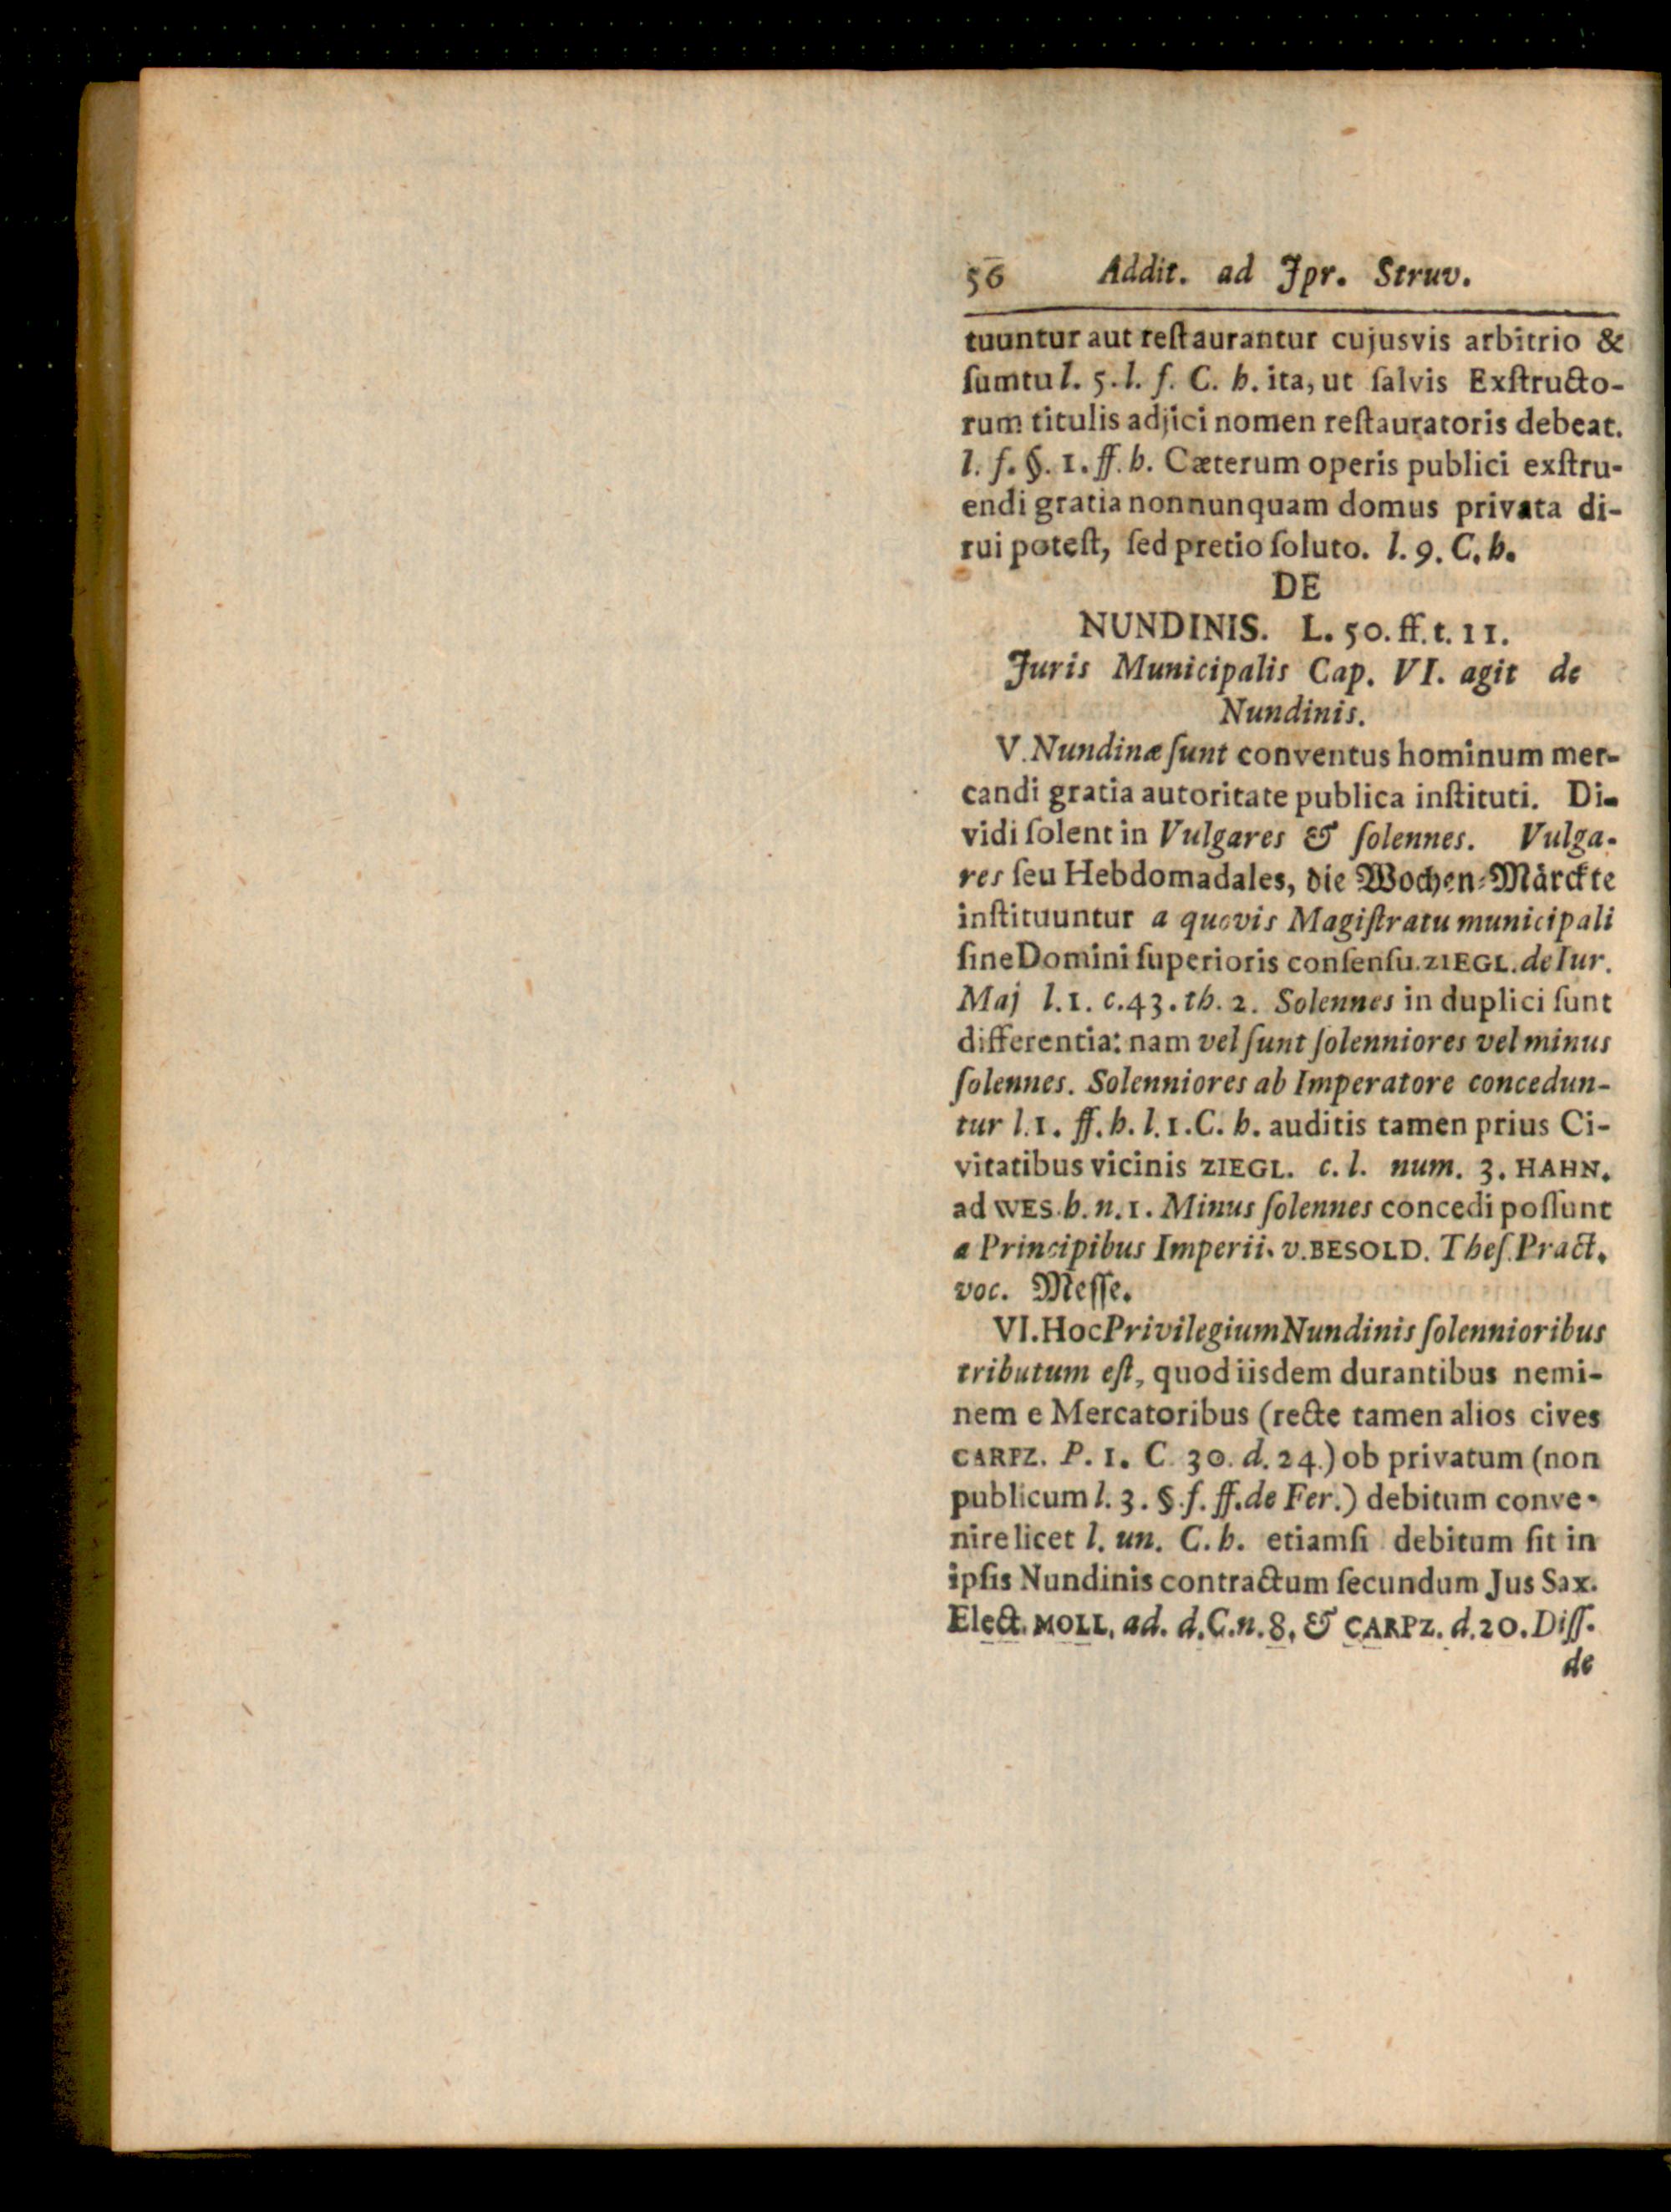 56 Addit. ad Jpr. Struv.
tuuntur aut reſtaurantur cujusvis arbitrio &
ſumtu l. 5. l. f. C. h. ita, ut ſalvis Exſtructo-
rum titulis adjici nomen reſtauratoris debeat.
l. f. §. 1. ff. h. Cæterum operis publici exſtru-
endi gratia nonnunquam domus privata di-
rui poteſt, ſed pretio ſoluto. l. 9. C. h.
DE
NUNDINIS. L. 50. ff. t. 11.
Juris Municipalis Cap. VI. agit de
Nundinis.
V. Nundinæ ſunt conventus hominum mer-
candi gratia autoritate publica inſtituti. Di-
vidi ſolent in Vulgares & ſolennes. Vulga-
res ſeu Hebdomadales, die Wochen-Märckte
inſtituuntur a quovis Magiſtratu municipali
ſine Domini ſuperioris conſenſu. ZIEGL. de Iur.
Maj l. 1. c. 43. th. 2. Solennes in duplici ſunt
differentia: nam vel ſunt ſolenniores vel minus
ſolennes. Solenniores ab Imperatore concedun-
tur l. 1. ff. h. l. 1. C. h. auditis tamen prius Ci-
vitatibus vicinis ZIEGL. c. l. num. 3. HAHN.
ad WES. h. n. 1. Minus ſolennes concedi poſſunt
a Principibus Imperii. v. BESOLD. Theſ. Pract.
voc. Meſſe.
VI. Hoc Privilegium Nundinis ſolennioribus
tributum eſt, quod iisdem durantibus nemi-
nem e Mercatoribus (recte tamen alios cives
CARPZ. P. 1. C. 30. d. 24.) ob privatum (non
publicum l. 3. §. f. ff. de Fer.) debitum conve-
nire licet l. un. C. h. etiamſi debitum ſit in
ipſis Nundinis contractum ſecundum Jus Sax.
Elect. MOLL. ad. d. C. n. 8. & CARPZ. d. 20. Diſſ.
de